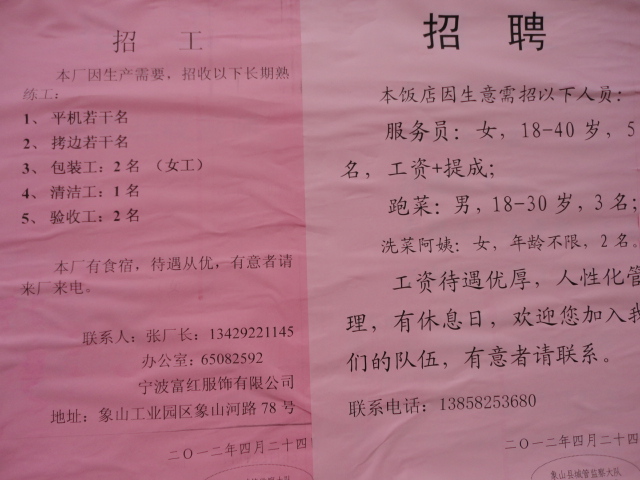 招 工
本厂因生产需要，招收以下长期熟
练工：
1、 平机若干名
2、 拷边若干名
3、 包装工：2 名 （女工）
4、 清洁工：1 名
5、 验收工：2 名
本厂有食宿，待遇从优，有意者请
来厂来电。
联系人：张厂长：13429221145
办公室：65082592
宁波富红服饰有限公司
地址：象山工业园区象山河路 78 号
二〇一二年四月二十四
招 聘
本饭店因生意需招以下人员：
服务员：女，18-40 岁，5
名，工资+提成；
跑菜：男，18-30 岁，3 名；
洗菜阿姨：女，年龄不限，2 名。
工资待遇优厚，人性化管
理，有休息日，欢迎您加入我
们的队伍，有意者请联系。
联系电话：13858253680
二〇一二年四月二十四
象山县城管监察大队